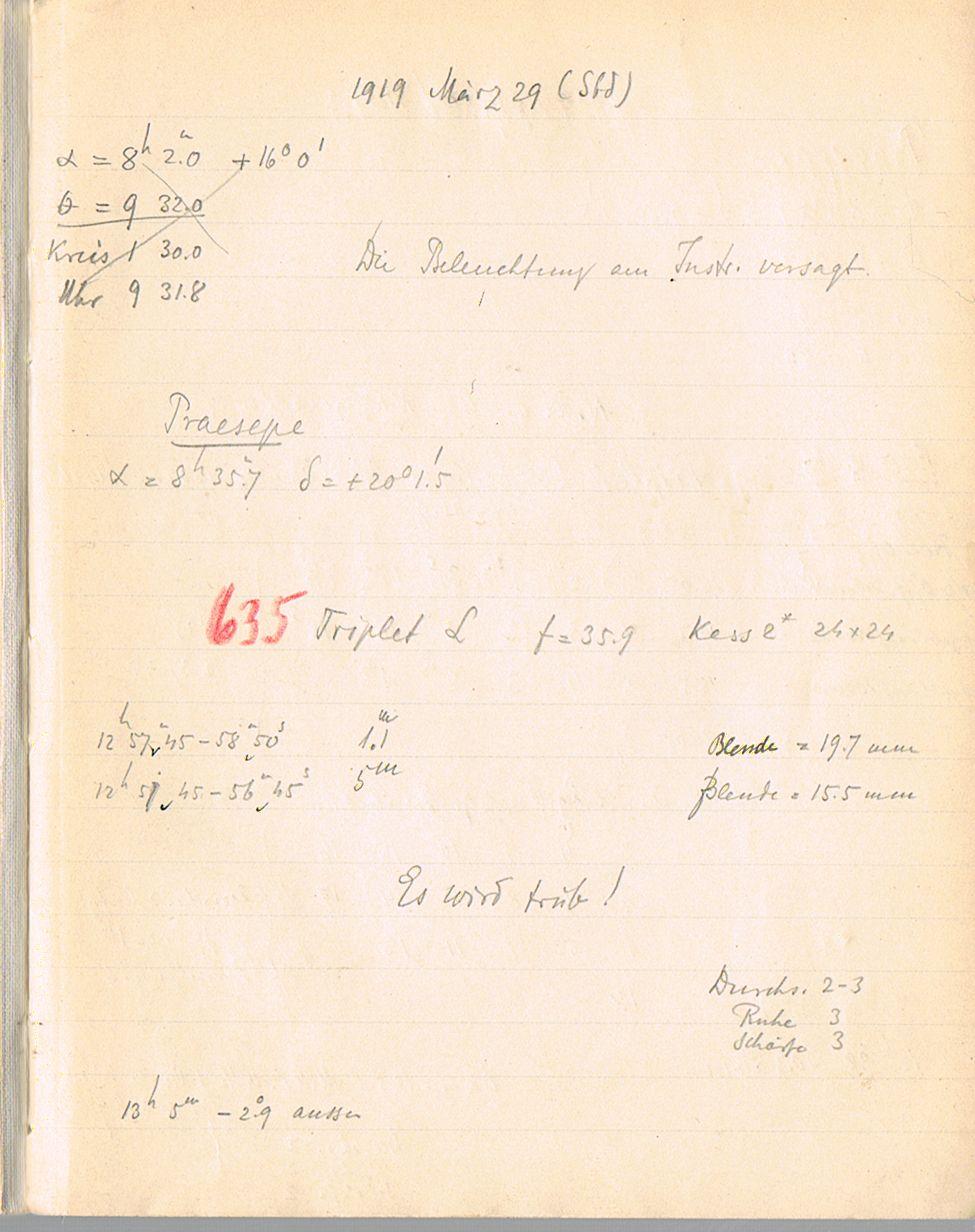 1919 März 29 (Sbd)
α = 8ʰ 2.ᵐ0 + 16° 0'
θ = 9 32.0
Kreis 1 30.0
Uhr 9 31.8
Die Beleuchtung am Instr. versagt.
Praesepe
α = 8ʰ 35.ᵐ7 δ = + 20° 1.'5
635 Triplet L f = 35.9 Kass 2* 24 x 24
12ʰ 57ᵐ 45 – 58ᵐ 50ˢ 1.1ᵐ Blende = 19.7 mm
12ʰ 51 45 – 56ᵐ 45ˢ 5ᵐ Blende = 15.5 mm
Es wird trüb!
Durchs. 2-3
Ruhe 3
Schärfe 3
13ʰ 5ᵐ – 2.°9 aussen